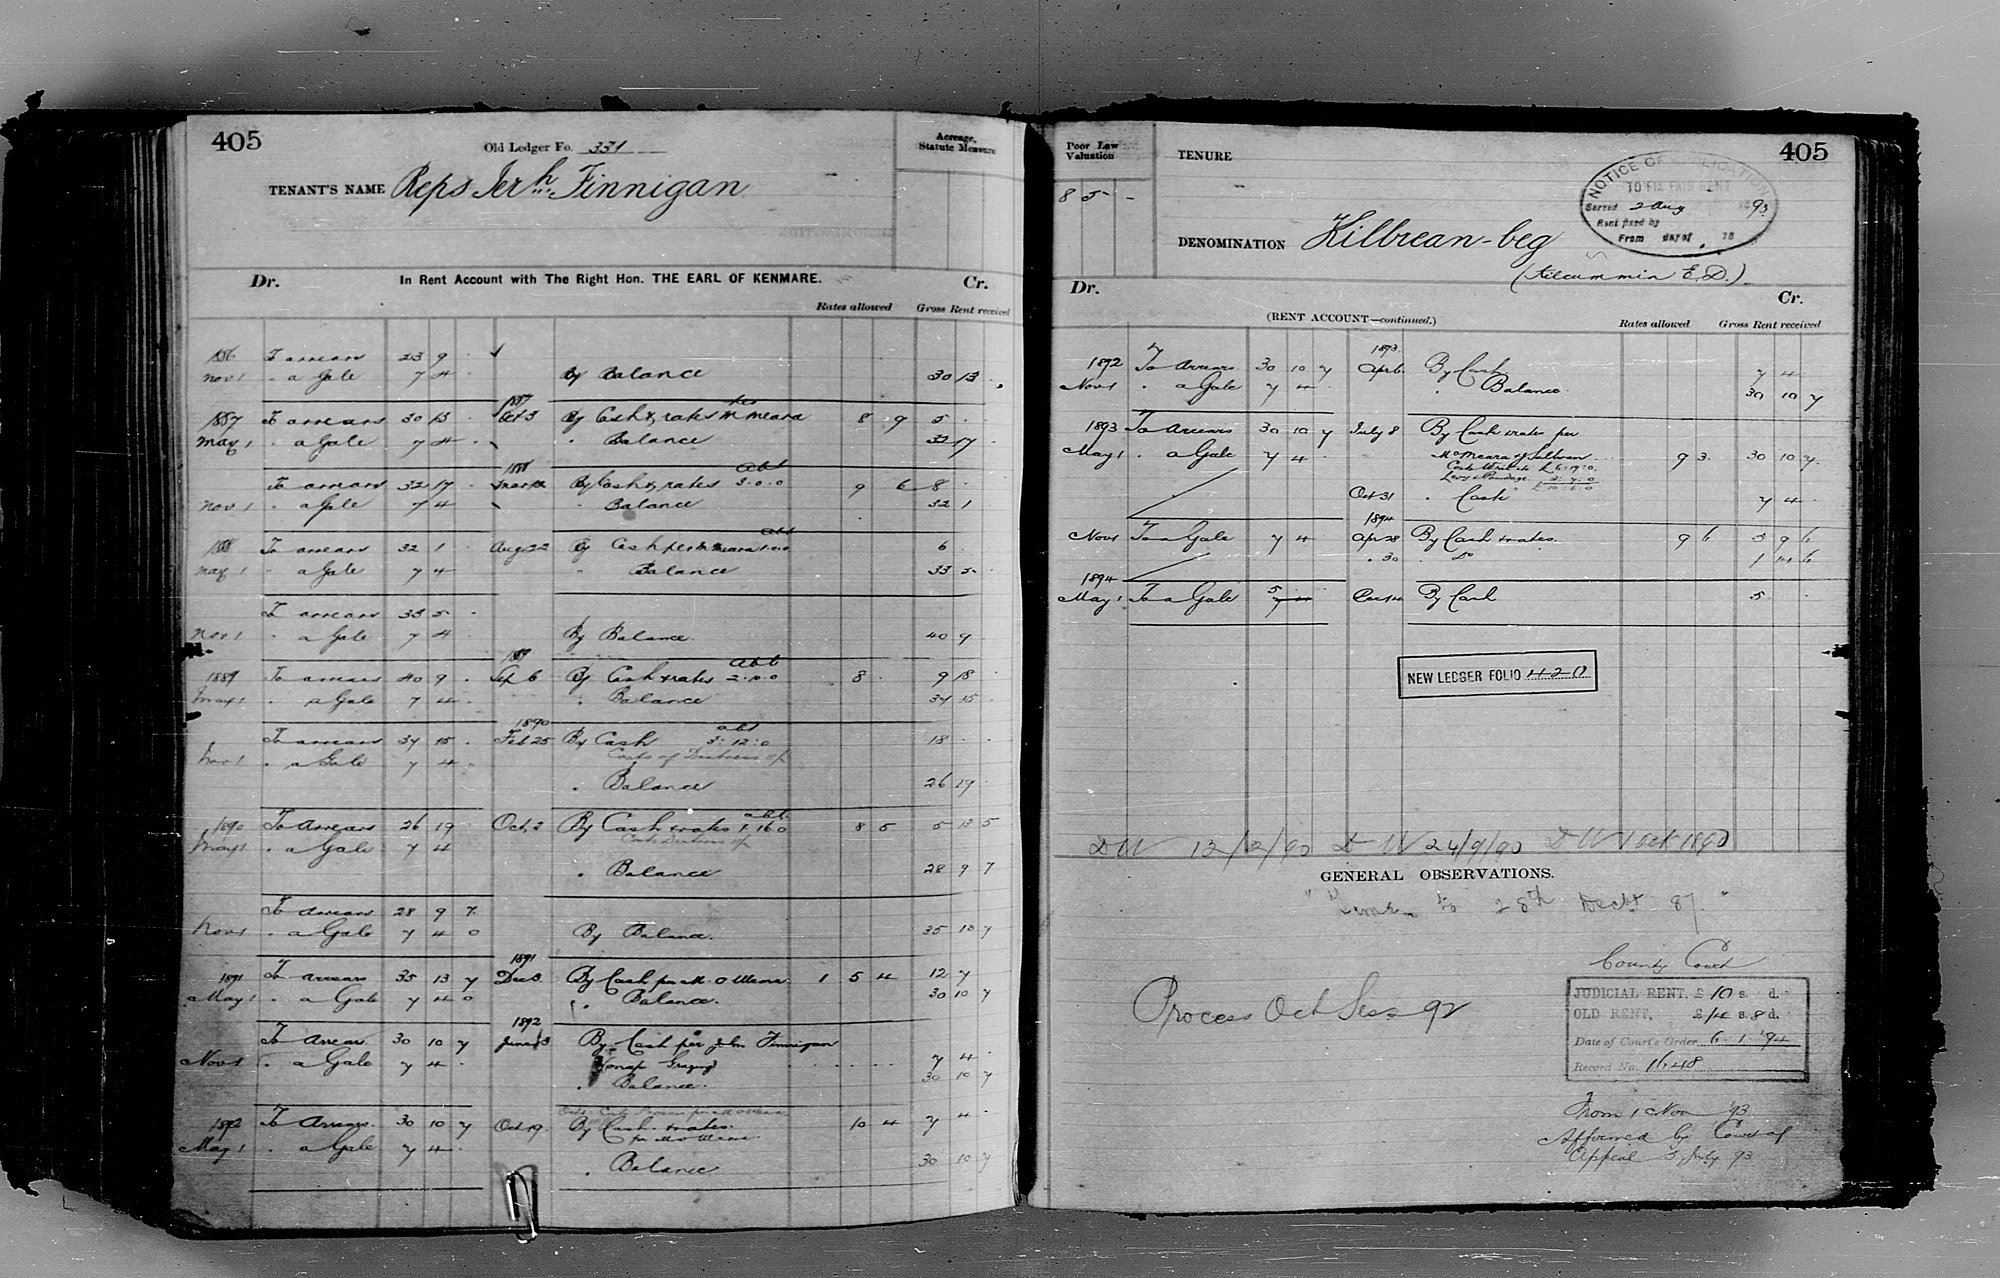 405
Old Ledger Fo. 331
Acreage, Statute Measure
TENANT'S NAME Reps Jerh. Finnigan
Dr. In Rent Account with The Right Hon. THE EARL OF KENMARE. Cr.
Rates allowed Gross Rent received
1886 To arrears 23 9 .
Nov 1 " a Gale 7 4 . By Balance 30 13 .
1887 To arrears 30 13 . 1887 Oct 3 By Cash & rates per M Meara 8 9 5 . .
May 1 " a Gale 7 4 . " Balance 32 17 .
To arrears 32 17 . 1888 By Cash & rates abt 3.0.0 9 6 8 . .
Nov 1 " a Gale 7 4 " Balance 32 1
1888 To arrears 32 1 . Aug 22 By Cash per M Meara abt 1.0.0 6 .
May 1 " a Gale 7 4 " Balance 33 5 .
To arrears 33 5 .
Nov 1 " a Gale 7 4 By Balance 40 9
1889 To arrears 40 9 . 1889 Sep 6 By Cash & rates abt 2.10.0 8 . 9 18
May 1 " a Gale 7 4 . " Balance 37 15
To arrears 37 15 . 1890 Feb 25 By Cash abt 3:12:0 18 . .
Nov 1 " a Gale 7 4 . Costs of Distress
" Balance 26 19
1890 To Arrears 26 19 Oct 2 By Cash & rates abt. 1.16.0 8 5 5 13 5
May 1 " a Gale 7 4
" Balance 28 9 7
To Arrears 28 9 7
Nov 1 " a Gale 7 4 0 By Balance. 35 13 7
1891 To arrears 35 13 7 1891 Dec 3 By Cash per M. O Meara 1 5 4 12 7
May 1 " a Gale 7 4 0 " Balance. 30 10 7
To Arrears 30 10 7 1892 June 13 By Cash per John Finnigan
Nov 1 " a Gale 7 4 . 7 4 .
" Balance. 30 10 7
1892 To Arrears. 30 10 7 Oct 19. By Cash & rates. 10 4 7 4
May 1 " a Gale 7 4 . per M O Meara
" Balance 30 10 7
Poor Law Valuation
8 5 -
TENURE
405
NOTICE OF APPLICATION
TO FIX FAIR RENT
Served 2 Aug 1893
Rent fixed by
From day of 18
DENOMINATION Kilbrean-beg
(Kilcummin E.D.)
Dr. Cr.
(RENT ACCOUNT—continued.)
Rates allowed Gross Rent received
1892 To Arrears 30 10 7 1893. Apr 6. By Cash 7 4
Nov 1 " a Gale 7 4 . " Balance. 30 10 7
1893 To Arrears 30 10 7 July 8 By Cash & rates per
May 1 " a Gale 7 4 . McMeara & Sullivan 9 3. 30 10 7
Costs Writ £6.19.0.
Levy & Poundage 3:7:0
£10:6:0
Oct 31 " Cash 7 4 .
Nov 1 To a Gale 7 4 1894 Apr 28 By Cash & rates. 9 6 5 9 6
" 30 " Do 1 14 6
1894
May 1 To a Gale 5 7 4 Dec 14 By Cash 5 .
NEW LEDGER FOLIO 420
DW 12/2/90 DW 24/9/90 DW 1 Oct 1890
GENERAL OBSERVATIONS.
"Time to 28th Decbr 87."
Process Oct Sess 92
County Court
JUDICIAL RENT. £10 s. d.
OLD RENT. £14 s. 8 d.
Date of Court's Order 6.1.'94
Record No. 1648
From 1 Nov '93
Affirmed by Court of
Appeal 3 July 93